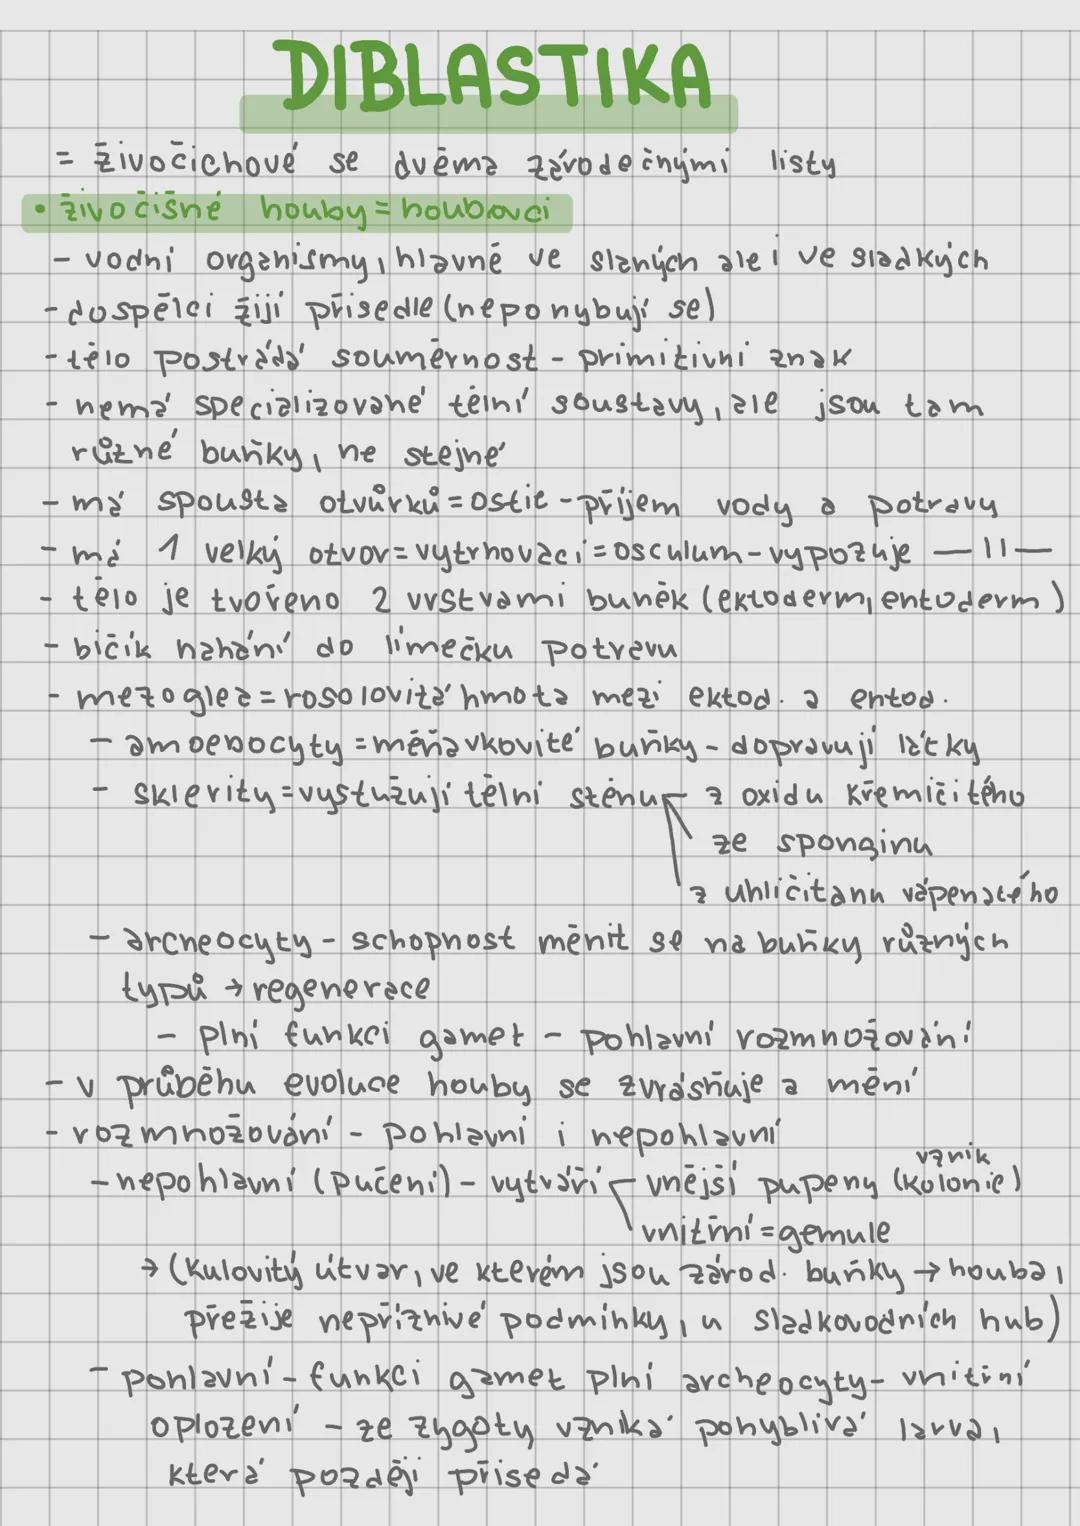 DIBLASTIKA
= živočichové se dvěma zárodečnými listy
• živočišné houby = houbovci
- vodní organismy, hlavně ve slaných ale i ve sladkých
- dospělci žijí přisedle (nepohybují se)
- tělo postrádá souměrnost - primitivní znak
- nemá specializované tělní soustavy, ale jsou tam
různé buňky, ne stejné
- má spousta otvůrků = ostie - příjem vody a potravy
- má 1 velký otvor = vyvrhovací = osculum - vypozuje —II—
- tělo je tvořeno 2 vrstvami buněk (ektoderm, entoderm)
- bičík nahání do límečku potravu
- mezoglea = rosolovitá hmota mezi ektod. a entod.
- amoebocyty = měňavkovité buňky - dopravují látky
- sklerity = vystužují tělní stěnu z oxidu křemičitého
ze sponginu
z uhličitanu vápenatého
- archeocyty - schopnost měnit se na buňky různých
typů → regenerace
- plní funkci gamet - pohlavní rozmnožování
- v průběhu evoluce houby se zvrásňuje a mění
- rozmnožování - pohlavní i nepohlavní
- nepohlavní (pučení) - vytváří vnější pupeny (vznik kolonie)
vnitřní = gemule
→ (kulovitý útvar, ve kterém jsou zárod. buňky → houba,
přežije nepříznivé podmínky, u sladkovodních hub)
- pohlavní - funkci gamet plní archeocyty - vnitřní
oplození - ze zygoty vzniká pohyblivá larva,
která později přisedá